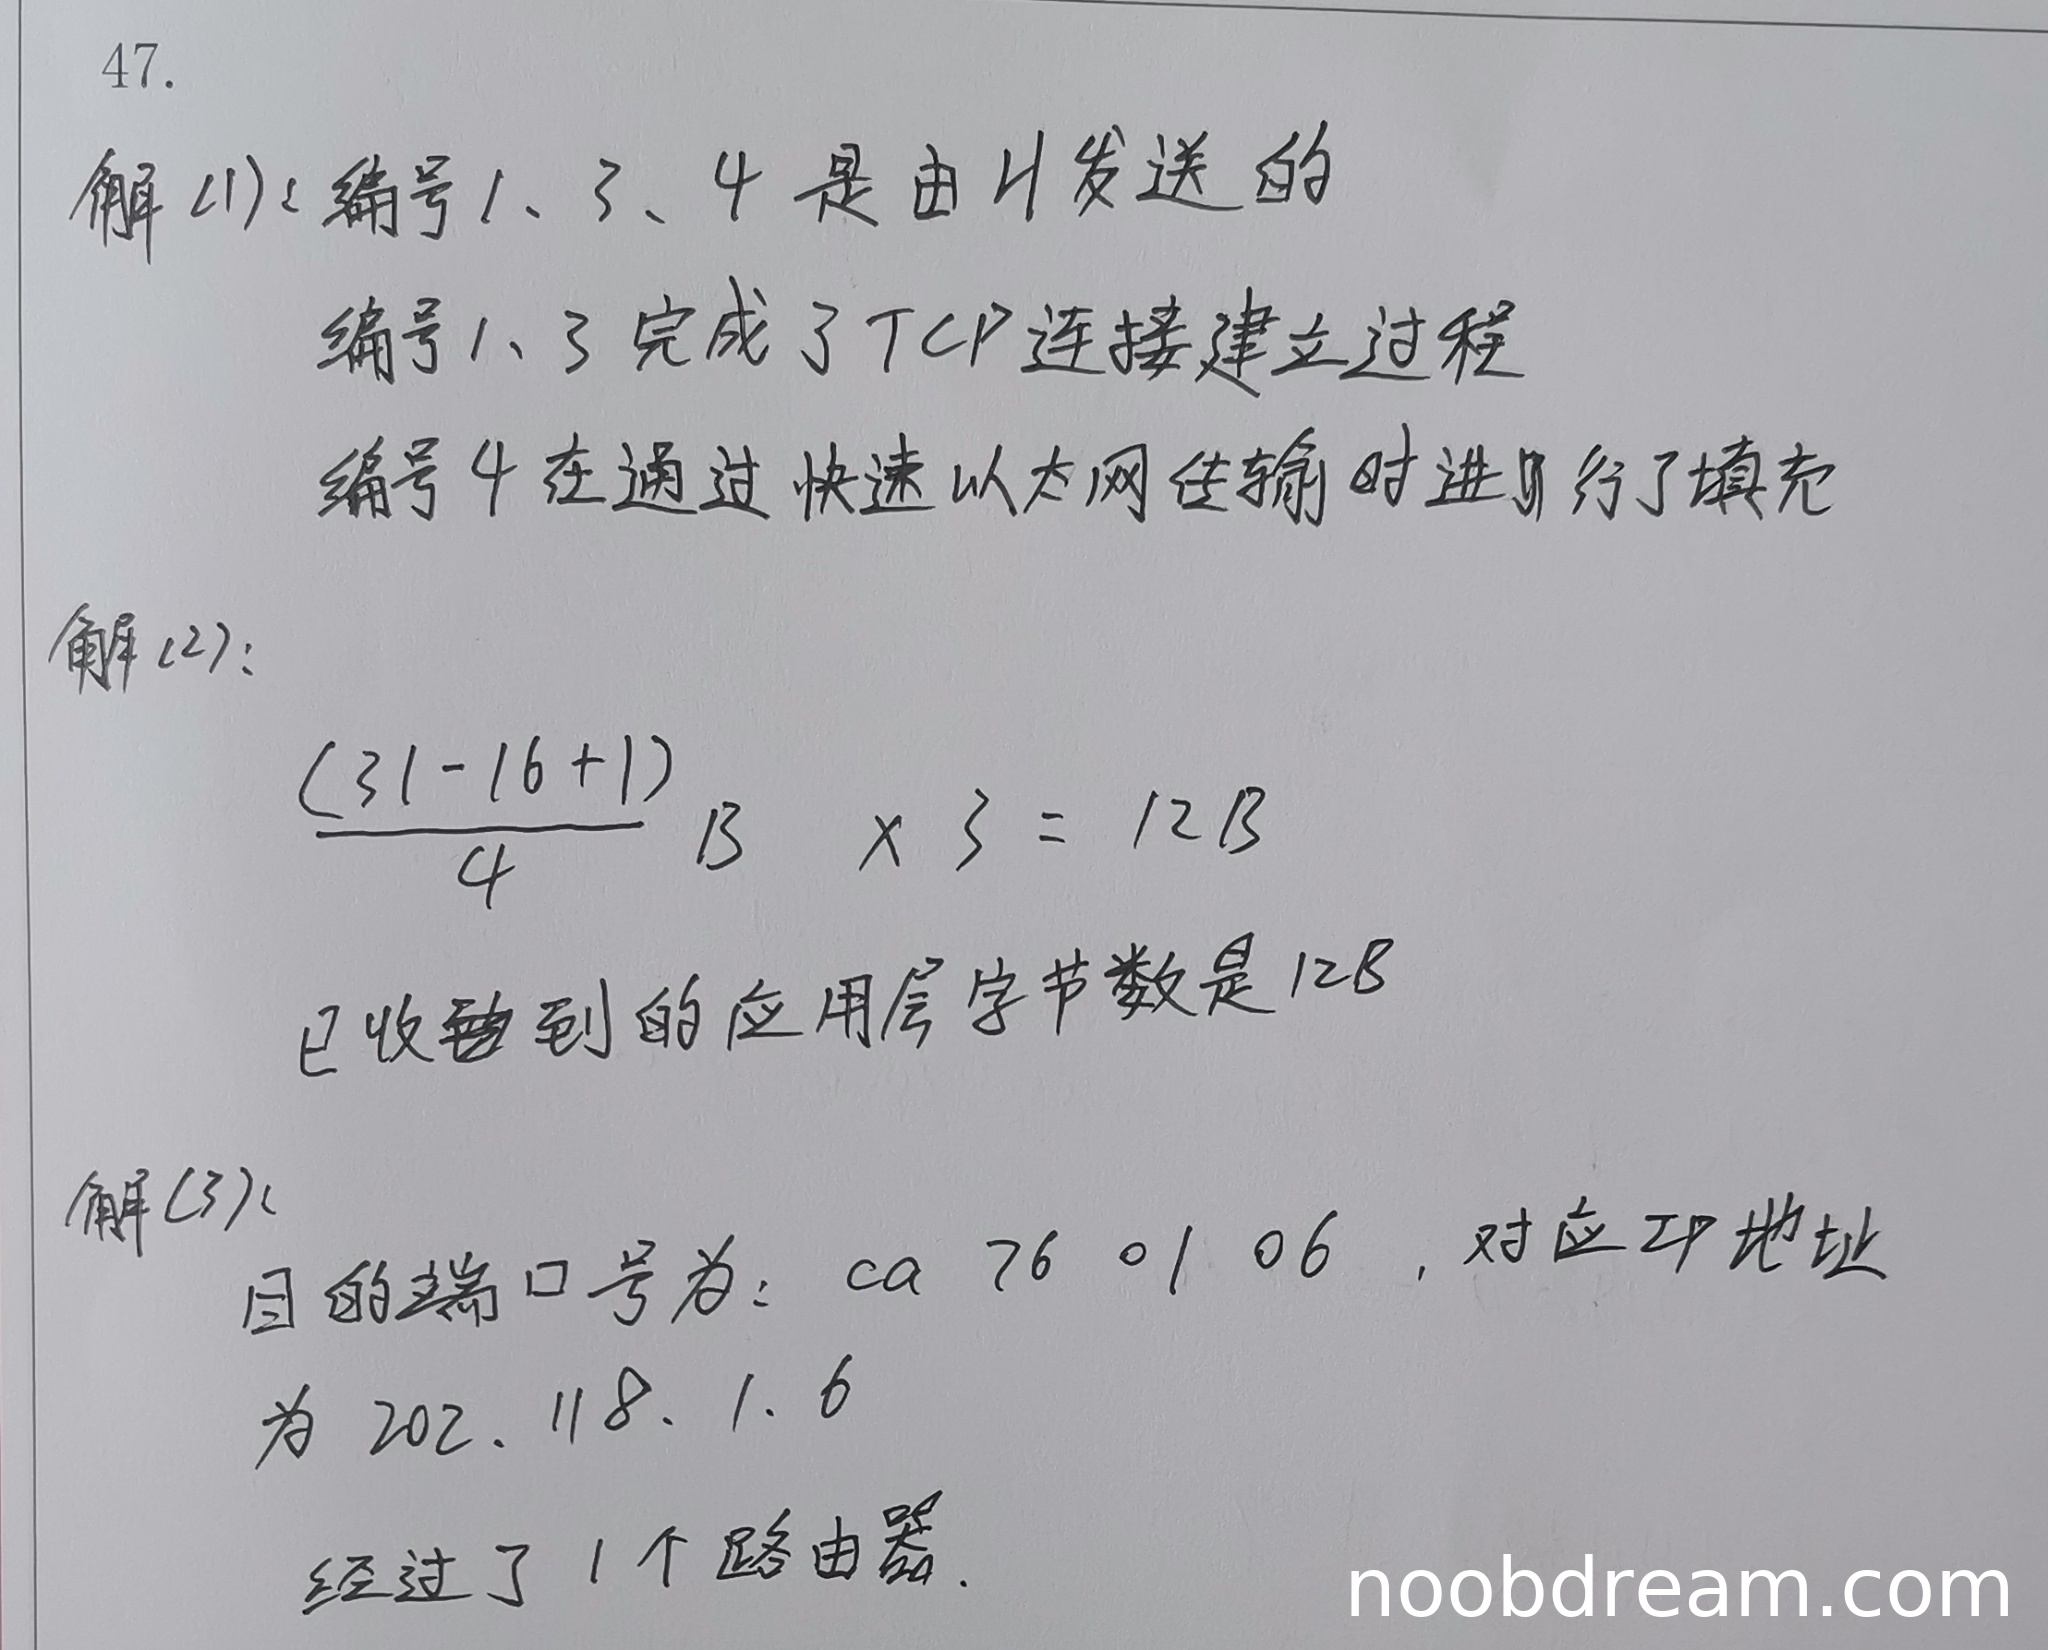 47.
解(1): 编号1、3、4是由H发送的
编号1、3完成了TCP连接建立过程
编号4在通过快速以太网传输时进行了填充
解(2):
(31-16+1)
4
B × 3 = 12B
已收到的应用层字节数是12B
解(3):
目的端口号为: ca 76 01 06 , 对应IP地址
为 202. 118. 1. 6
经过了1个路由器.
noobdream.com